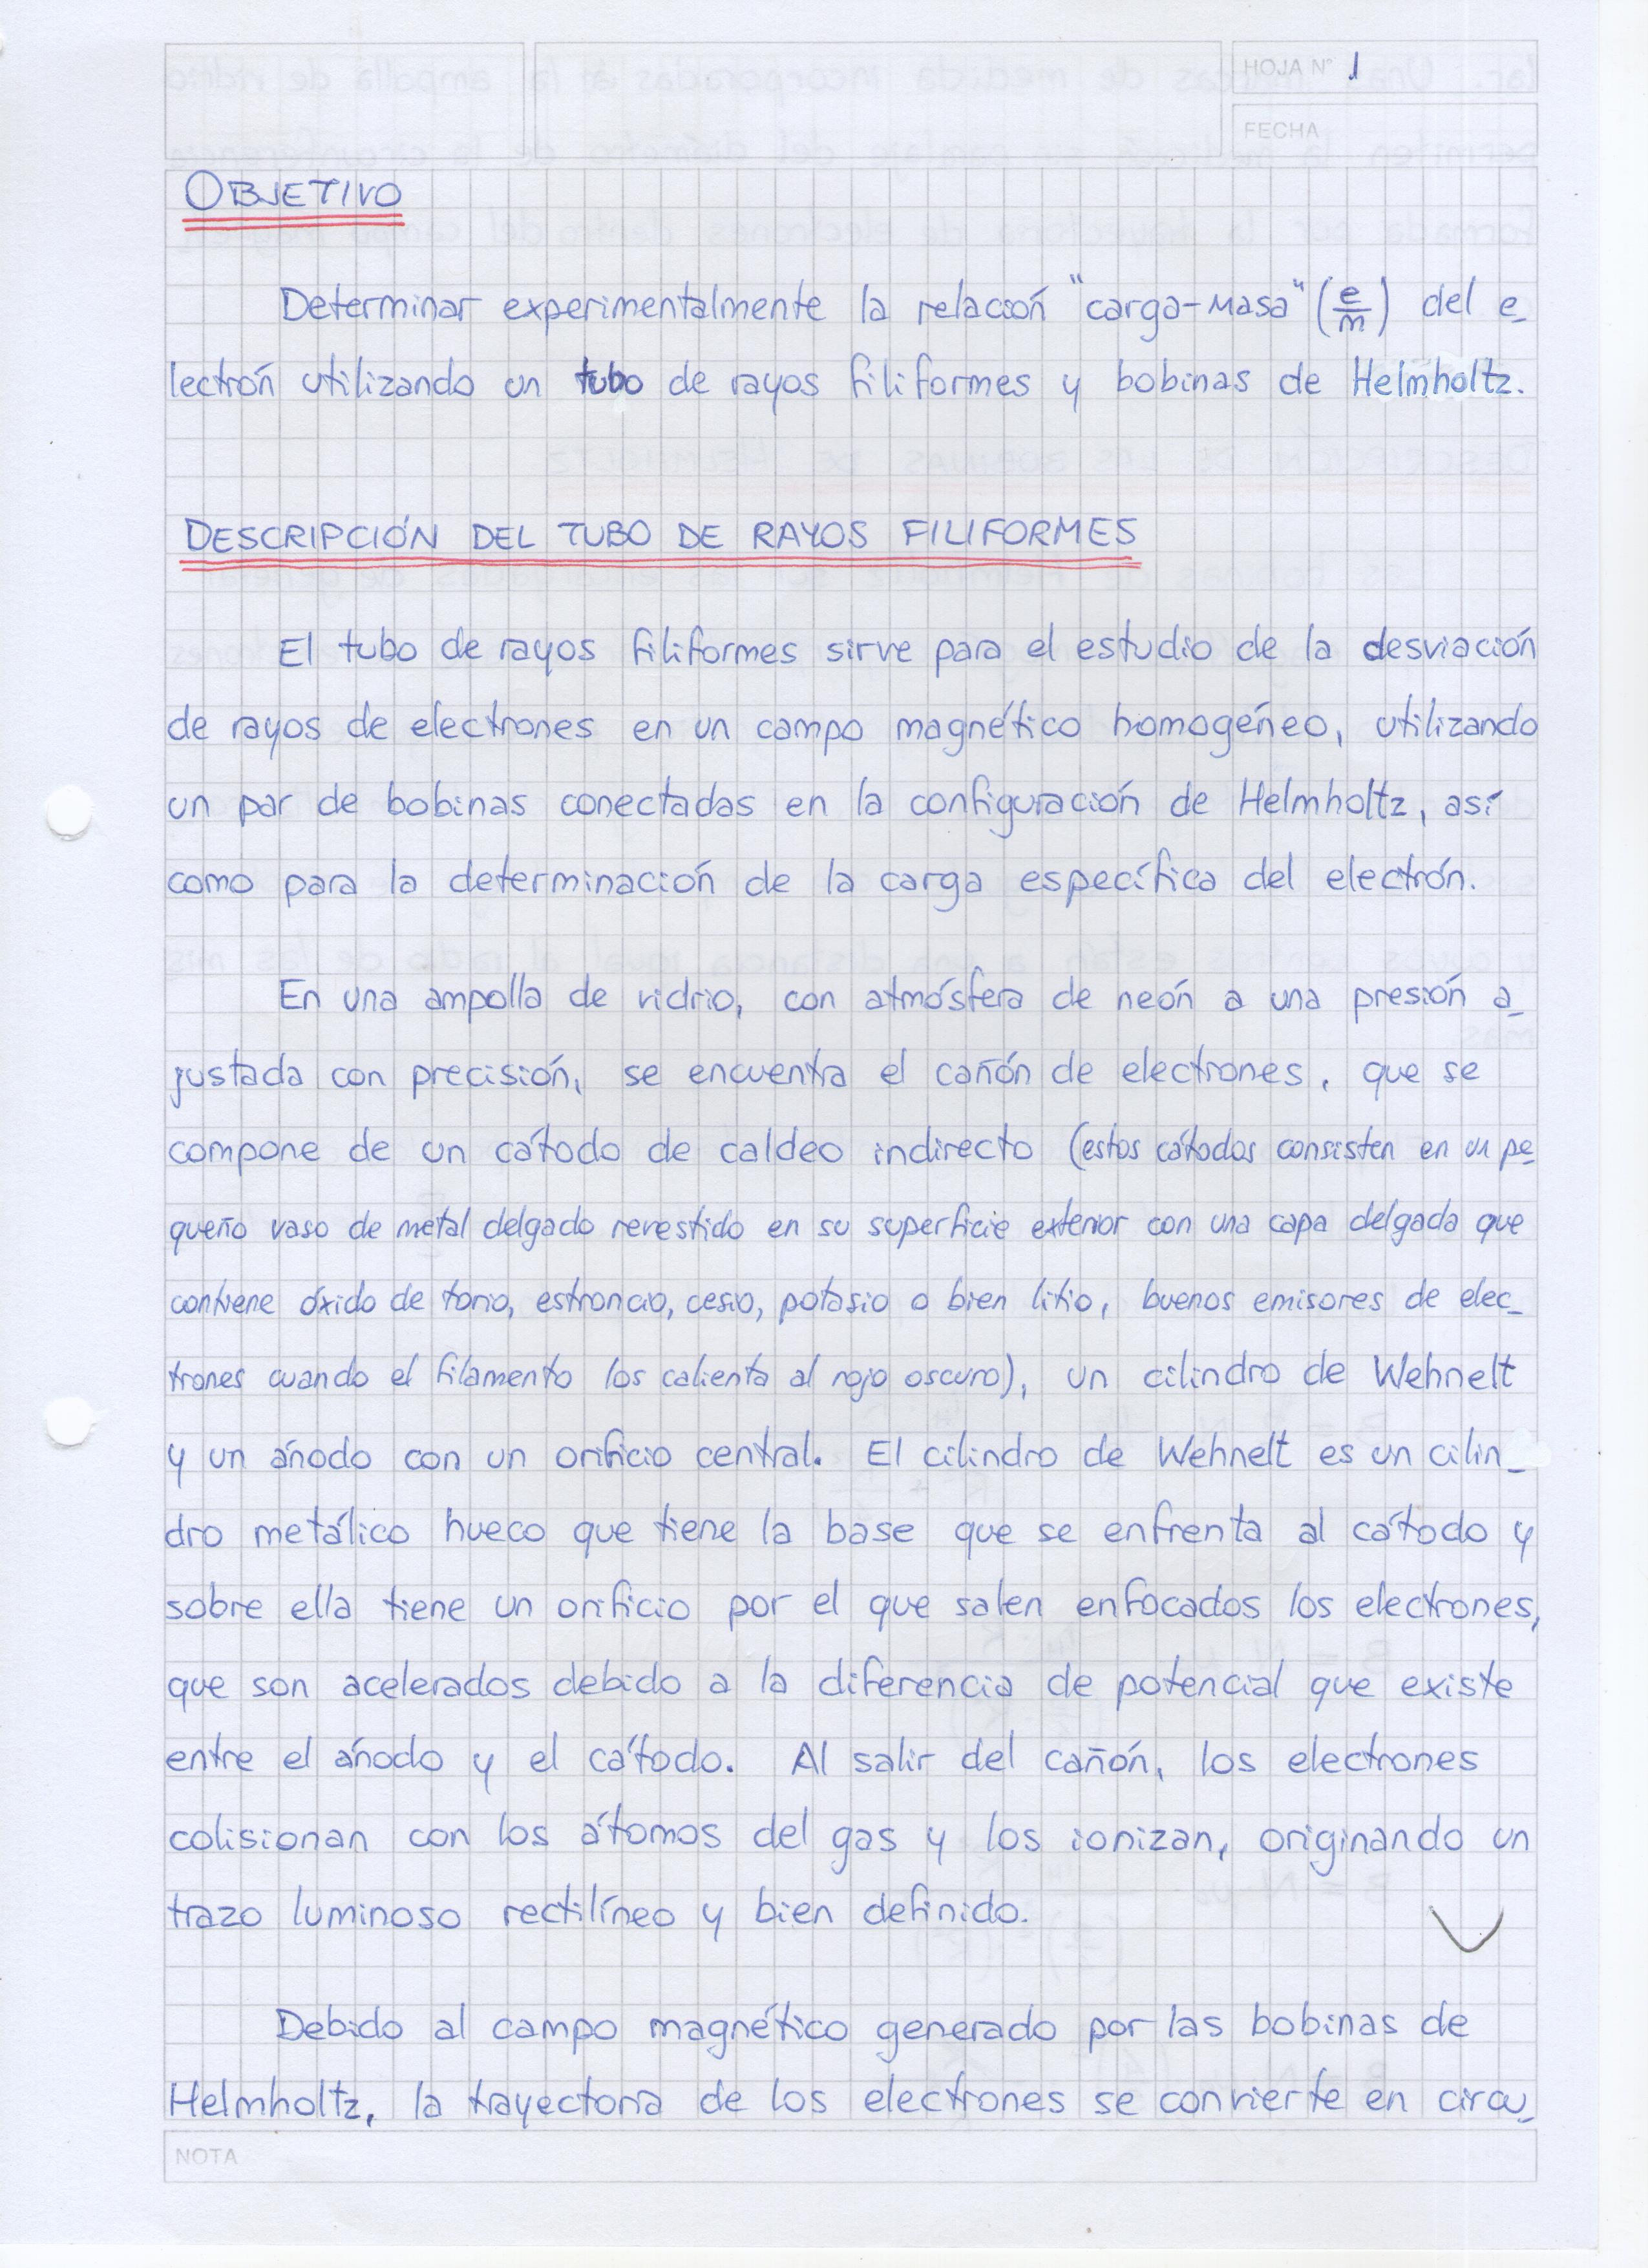 HOJA N° 1
FECHA
OBJETIVO
Determinar experimentalmente la relación "carga-masa" (e/m) del e_
lectrón utilizando un tubo de rayos filiformes y bobinas de Helmholtz.
DESCRIPCIÓN DEL TUBO DE RAYOS FILIFORMES
El tubo de rayos filiformes sirve para el estudio de la desviación
de rayos de electrones en un campo magnético homogéneo, utilizando
un par de bobinas conectadas en la configuración de Helmholtz, así
como para la determinación de la carga específica del electrón.
En una ampolla de vidrio, con atmósfera de neón a una presión a_
justada con precisión, se encuentra el cañón de electrones, que se
compone de un cátodo de caldeo indirecto (estos cátodos consisten en un pe_
queño vaso de metal delgado revestido en su superficie exterior con una capa delgada que
contiene óxido de torio, estroncio, cesio, potasio o bien litio, buenos emisores de elec_
trones cuando el filamento los calienta al rojo oscuro), un cilindro de Wehnelt
y un ánodo con un orificio central. El cilindro de Wehnelt es un cilin_
dro metálico hueco que tiene la base que se enfrenta al cátodo y
sobre ella tiene un orificio por el que salen enfocados los electrones,
que son acelerados debido a la diferencia de potencial que existe
entre el ánodo y el cátodo. Al salir del cañón, los electrones
colisionan con los átomos del gas y los ionizan, originando un
trazo luminoso rectilíneo y bien definido.
Debido al campo magnético generado por las bobinas de
Helmholtz, la trayectoria de los electrones se convierte en circu_
NOTA